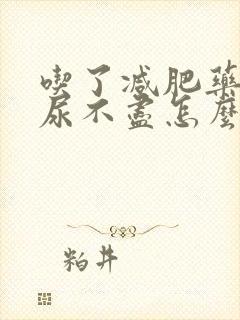 喫了减肥藥
尿不盡怎麼
粕井